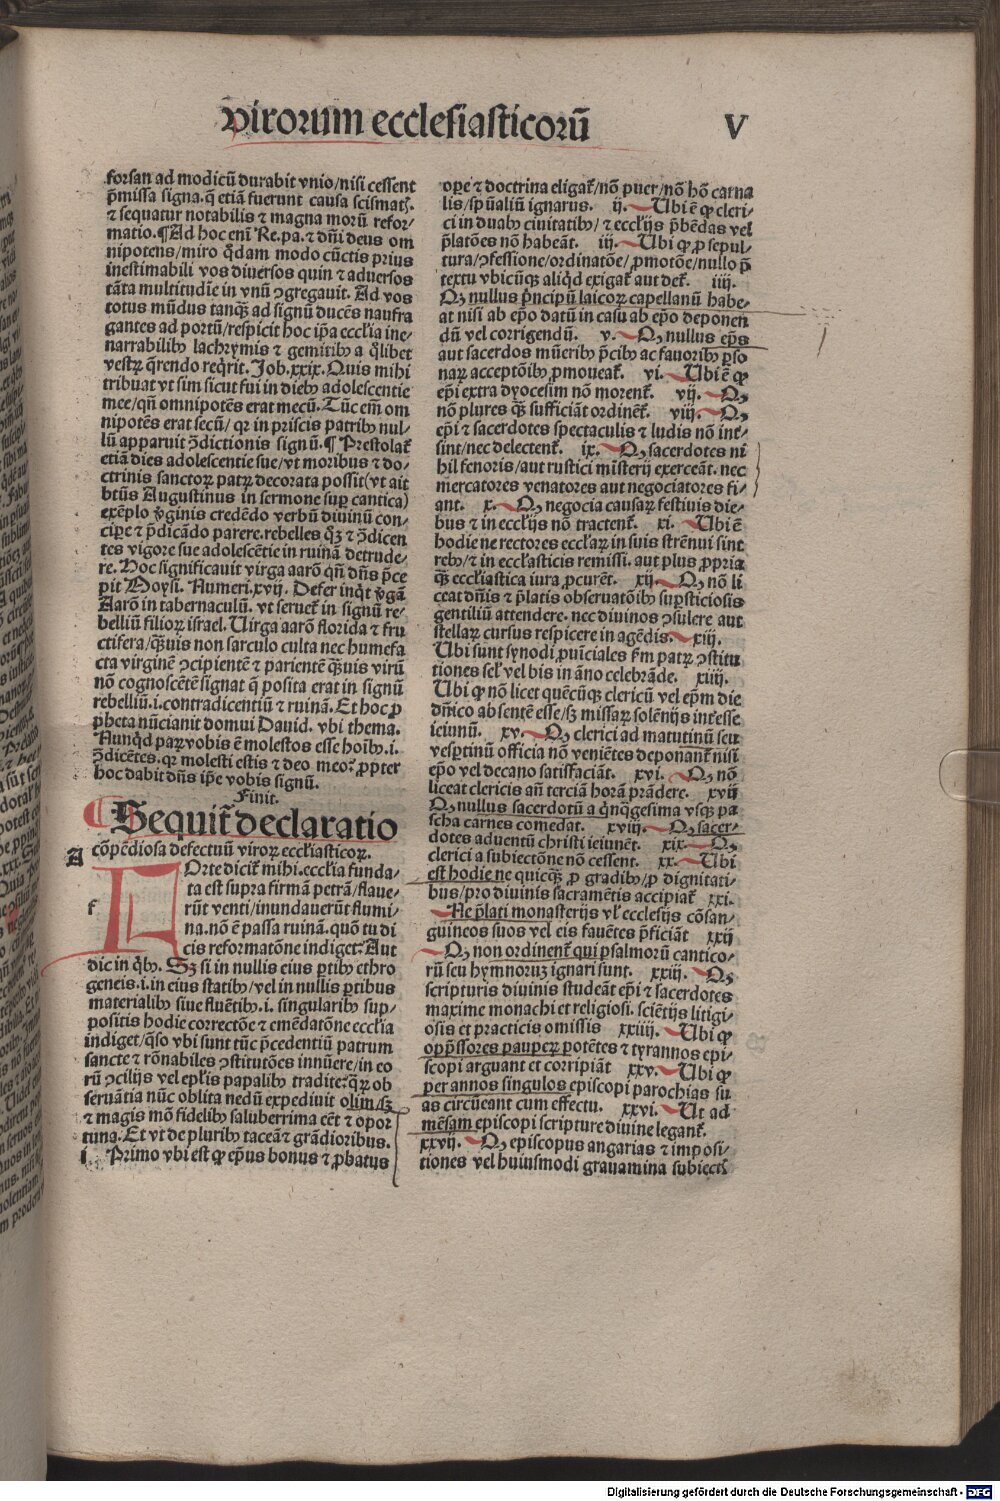 virorum ecclesiasticorū
V
forsan ad modicū durabit vnio/nisi cessent
p̄missa signa. q̄ etiā fuerunt causa scismatꝭ.
⁊ sequatur notabilis ⁊ magna morū refor/
matio. ¶Ad hoc eni ̄ Re. pa. ⁊ dn̄i deus om
nipotens/miro q̊dam modo cūctis prius
inestimabili vos diuersos quin ⁊ aduersos
tāta multitudīe in vnū ꝯgregauit. Ad vos
totus mūdus tanqꝫ ad signū ducēs naufra
gantes ad portū/respicit hoc ip̄a eccłia ine/
narrabilibꝰ lachrymis ⁊ gemitibꝰ a q̊libet
vestrꝝ q̄rendo reqͥrit. Job. xxix. Quis mihi
tribuat vt sim sicut fui in diebꝰ adolescentie
mee/qn̄ omnipotēs erat mecū. Tūc em̄ om
nipotēs erat secū/ qꝛ in priscis patribꝰ nul/
lū apparuit ꝯ̄dictionis signū. ¶ Prestolat᷑
etiā dies adolescentie sue/vt moribus ⁊ do/
ctrinis sanctoꝝ patꝝ decorata possit(vt ait
btūs Augustinus in sermone suꝑ cantica)
exēplo ꝟginis credēdo verbū diuinū con/
ciꝑe ⁊ p̄dicādo parere. rebelles q̊ꝫ ⁊ ꝯ̄dicen
tes vigore sue adolescētie in ruinā detrude/
re. Hoc significauit virga aarō qn̄ dn̄s p̄ce
pit Moysi. Numeri. xvij. Defer inqͥt ꝟgā
Aarō in tabernaculū. vt seruet᷑ in signū re/
belliū filioꝝ israel. Uirga aarō florida ⁊ fru
ctifera/qͣꝫuis non sarculo culta nec humefa
cta virginē ꝯcipientē ⁊ parientē qͣꝫuis virū
nō cognoscētē signat q̄ posita erat in signū
rebelliū. i. contradicentiū ⁊ ruinā. Et hoc ꝓ
pheta nūciauit domui Dauid. vbi thema.
Nunqͥd paꝝ vobis ē molestos esse hoībꝰ. i.
ꝯ̄dicētes. qꝛ molesti estis ⁊ deo meo? ꝓpter
hoc dabit dn̄s ip̄e vobis signū.
Finit.
¶ Sequit᷑ declaratio
A cōpēdiosa defectuū viroꝝ eccłiasticoꝝ.
f
FOrte dicit᷑ mihi. eccłia funda/
ta est supra firmā petrā/flaue/
rūt venti/inundauerūt flumi/
na. nō ē passa ruinā. quō tu di
cis reformatōne indiget? Aut
dic in qͥbꝰ. Sꝫ si in nullis eius ꝑtibꝰ ethro
geneis. i. in eius statibꝰ/vel in nullis ꝑtibus
materialibꝰ siue fluētibꝰ. i. singularibꝰ sup/
positis hodie correctōe ⁊ emēdatōne eccłia
indiget/q̄so vbi sunt tūc p̄cedentiū patrum
sancte ⁊ rōnabiles ꝯstitutōes innūere/in eo
rū ꝯcilijs vel ep̄lis papalibꝰ tradite? qͣꝝ ob
seruātia nūc oblita nedū expediuit olim/sꝫ
⁊ magis mō fidelibꝰ saluberrima eēt ⁊ opor
tuna. Et vt de pluribꝰ taceā ⁊ grādioribus.
i. Primo vbi est qꝙ ep̄us bonus ⁊ ꝓbatus
oꝑe ⁊ doctrina eligat᷑/nō puer/nō hō carna
lis/sp̄ualiū ignarus. ij. Ubi ē qꝙ cleri/
ci in duabꝰ ciuitatibꝰ/ ⁊ eccłijs p̄bēdas vel
p̄latōes nō habeāt. iij. Ubi qꝙ ꝓ sepul/
tura/ꝯfessione/ordinatōe/ꝓmotōe/nullo p̄
textu vbicūqꝫ aliqͥd exigat᷑ aut det᷑. iiij.
Qꝙ nullus pͥncipū laicoꝝ capellanū habe/
at nisi ab ep̄o datū in casu ab ep̄o deponen
dū vel corrigendū. v. Qꝙ nullus ep̄us
aut sacerdos mūeribꝰ p̄cibꝰ ac fauoribꝰ ꝑso
naꝝ acceptōibꝰ ꝓmoueat᷑. vi. Ubi ē qꝙ
ep̄i extra dyocesim nō morent᷑. vij. Qꝙ
nō plures qͣꝫ sufficiāt ordinēt᷑. viij. Qꝙ
ep̄i ⁊ sacerdotes spectaculis ⁊ ludis nō int̄/
sint/nec delectent᷑. ix. Qꝙ sacerdotes ni
hil fenoris/aut rustici misterij exerceāt. nec
mercatores venatores aut negociatores fi/
ant. x. Qꝙ negocia causaꝝ festiuis die/
bus ⁊ in eccłijs nō tractent᷑. xi. Ubi ē
hodie ne rectores eccłaꝝ in suis strēnui sint
rebꝰ/⁊ in eccłasticis remissi. aut plus ꝓpria
qͣꝫ eccłiastica iura ꝓcurēt. xij. Qꝙ nō li
ceat dn̄is ⁊ p̄latis obseruatōibꝰ suꝑsticiosis
gentiliū attendere. nec diuinos ꝯsulere aut
stellaꝝ cursus respicere in agēdis. xiij.
Ubi sunt synodi ꝓuīciales fm̄ patꝝ ꝯstitu
tiones sel̄ vel bis in āno celebrāde. xiiij.
Ubi qꝙ nō licet quēcūqꝫ clericū vel ep̄m die
dn̄ico absentē esse/sꝫ missaꝝ solēnijs int̄esse
ieiunū. xv. Qꝙ clerici ad matutinū seu
vesꝑtinū officia nō veniētes deponant᷑ nisi
ep̄o vel decano satisfaciāt. xvi. Qꝙ nō
liceat clericis an̄ terciā horā prādere. xvij
Qꝙ nullus sacerdotū a qͥnqͣgesima vsqꝫ pa
scha carnes comedat. xviij. Qꝙ sacer/
dotes aduentū christi ieiunēt. xix. Qꝙ
clerici a subiectōne nō cessent. xx. Ubi
est hodie ne quicqꝫ ꝓ gradibꝰ/ꝓ dignitati/
bus/pro diuinis sacramētis accipiat᷑ xxi.
Ne p̄lati monasterijs vł ecclesijs cōsan/
guineos suos vel eis fauētes p̄ficiāt xxij
Qꝙ non ordinent᷑ qui psalmorū cantico/
rū seu hymnoruꝫ ignari sunt. xxiij. Qꝙ
scripturis diuinis studeāt ep̄i ⁊ sacerdotes
maxime monachi et religiosi. sciētijs litigi/
osis et practicis omissis xxiiij. Ubi qꝙ
opp̄ssores pauperꝝ potētes ⁊ tyrannos epi/
scopi arguant et corripiāt xxv. Ubi qꝙ
per annos singulos episcopi parochias su
as circūeant cum effectu. xxvi. Ut ad
mēsam episcopi scripture diuine legant᷑.
xxvij. Qꝙ episcopus angarias ⁊ imposi/
tiones vel huiusmodi grauamina subiectꝭ
Digitalisierung gefördert durch die Deutsche Forschungsgemeinschaft - DFG